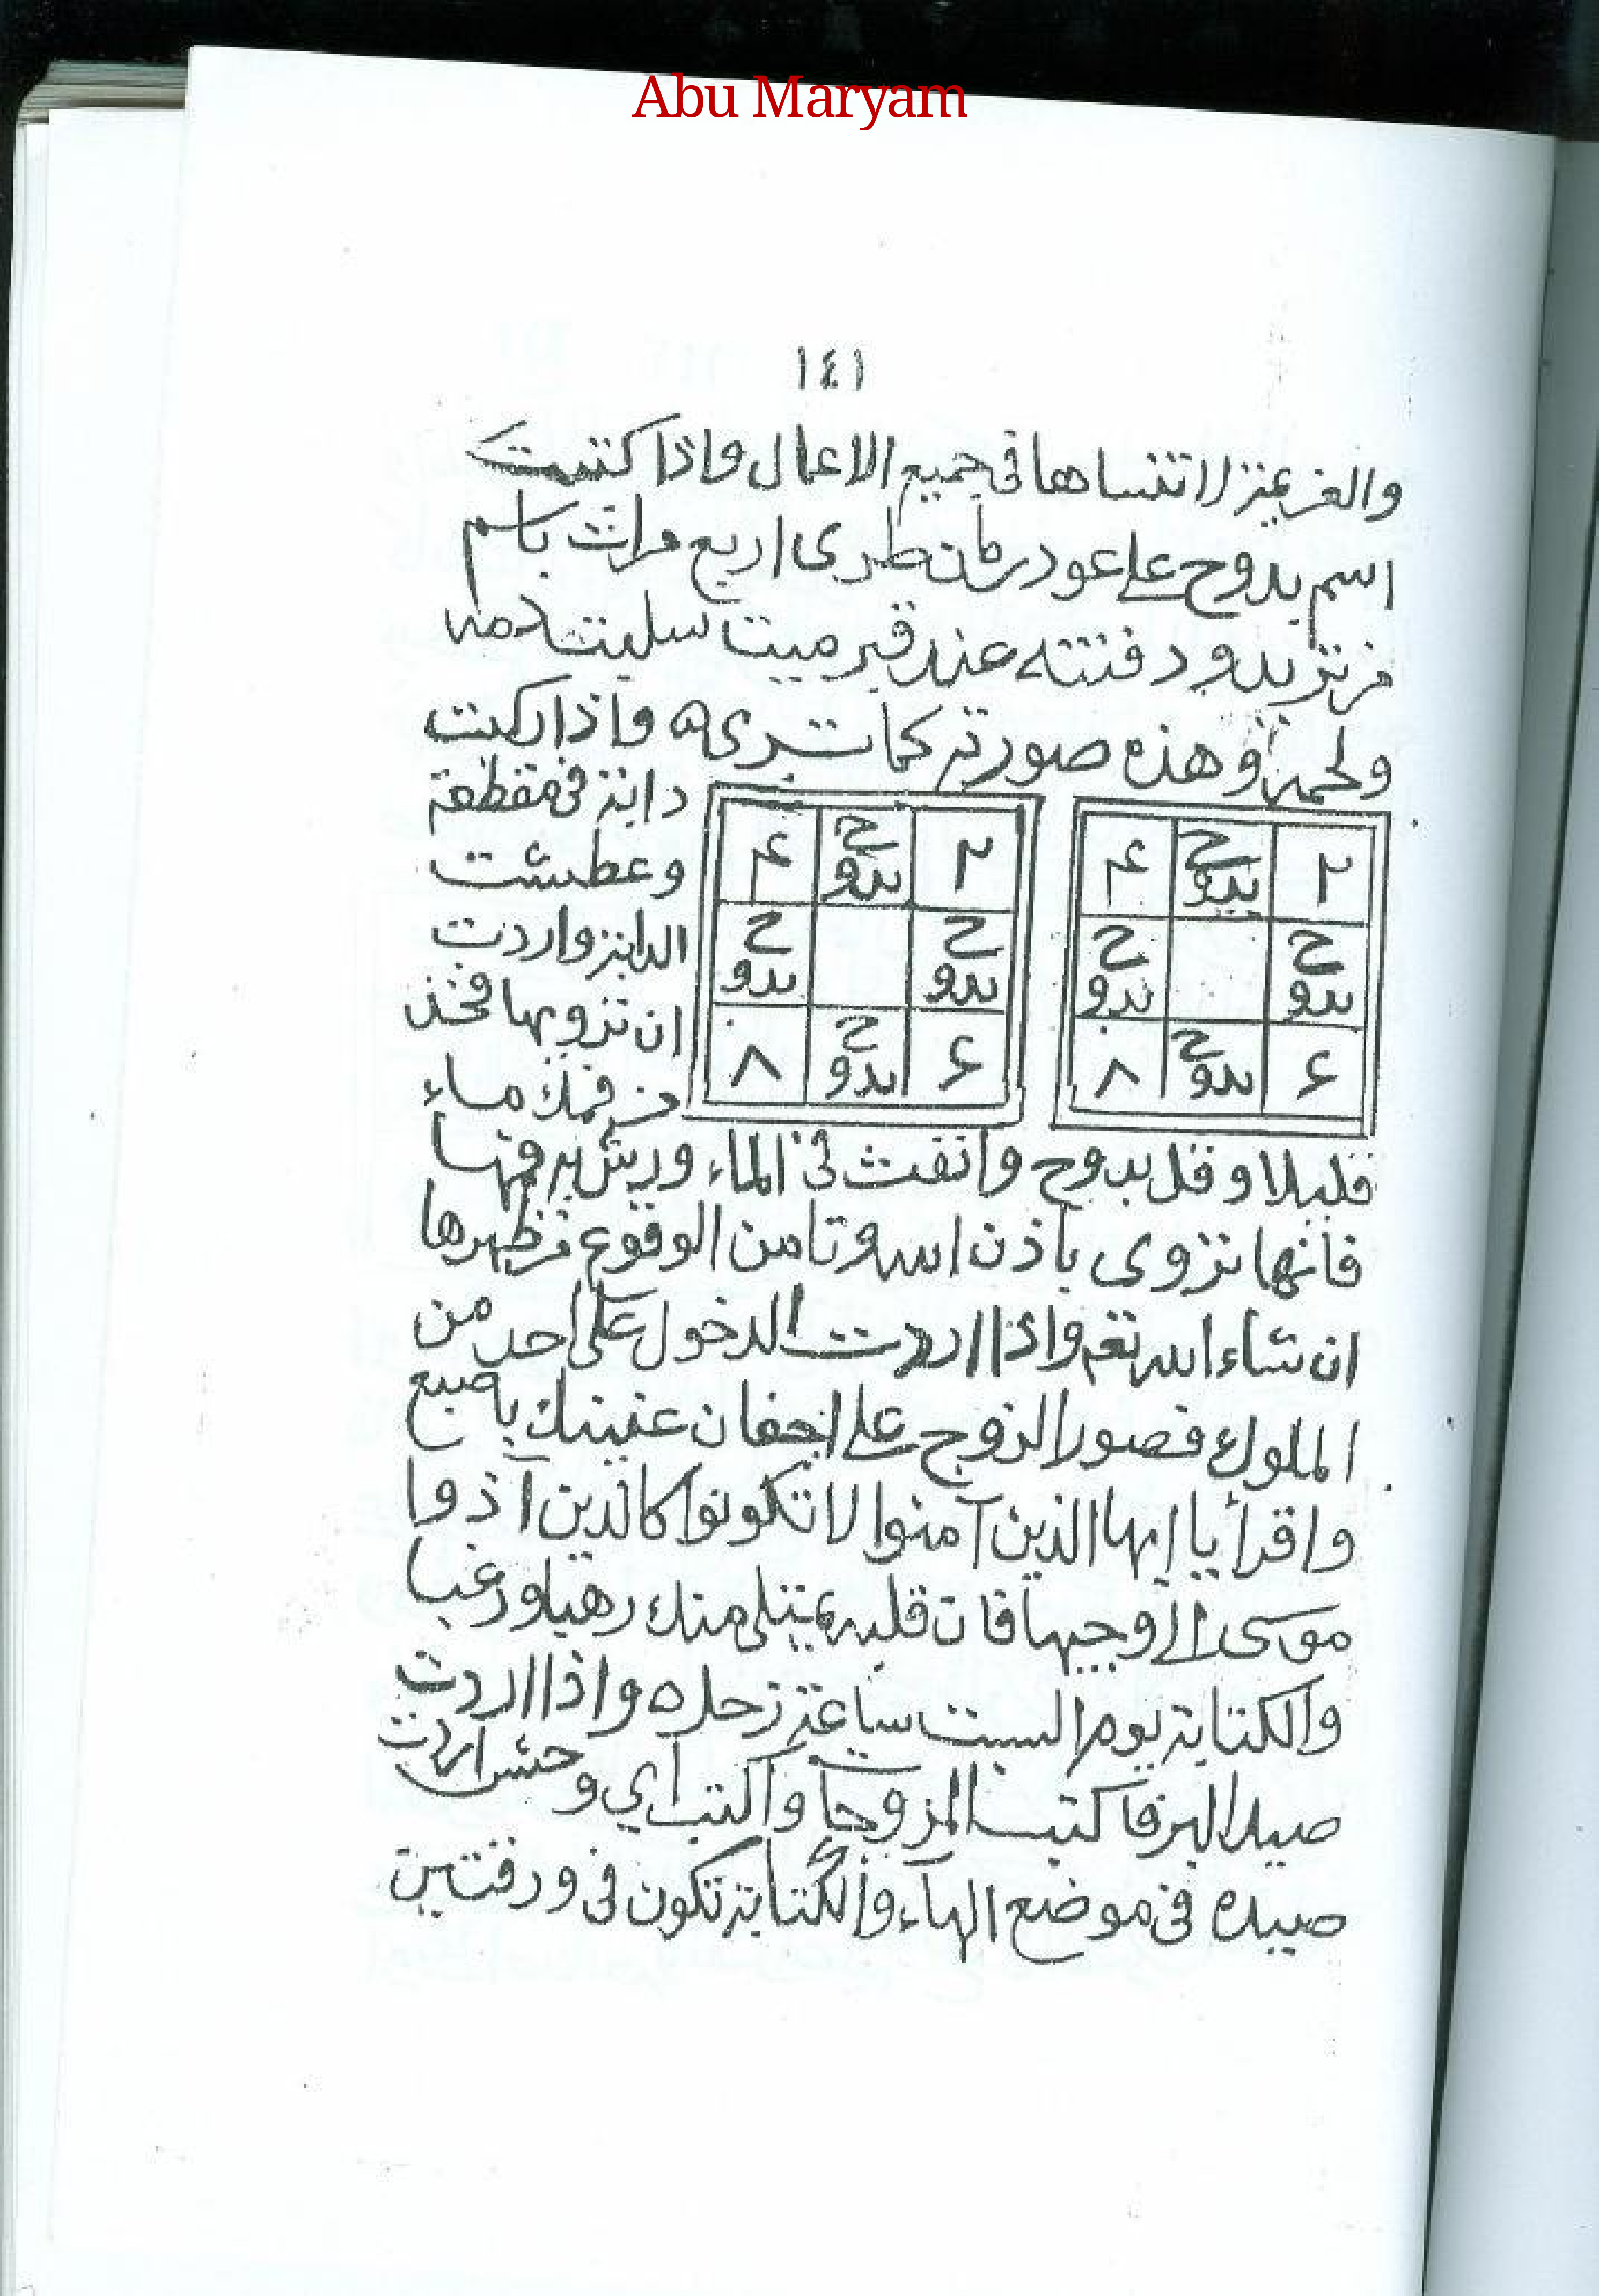 Abu Maryam
١٤١
والعزيمة لا تنساها فى جميع الاعمال واذا كتبت
اسم بدوح على عود رمان طرى اربع مرات باسم
من تريد ودفنته عند قبر ميت سليت دمه
ولحمه وهذه صورته كما ترى ه واذا ركبت
٢ بدوح ۴
بدوح بدوح
۶ بدوح ٨
٢ بدوح ۴
بدوح بدوح
۶ بدوح ٨
دابة فى مقطعة
وعطشت
الدابة واردت
ان تزويها فخذ
من فمك ماء
قليلا وقل بدوح وانفث فى الماء ورش به فمها
فانها تزوى باذن الله وتامن الوقوع من ظهرها
ان شاء الله تعم واذا اردت الدخول على احد من
الملوك فصور الزوج على اجفان عنينك باصبع
واقرأ يا ايها الذين آمنوا لا تكونوا كالذين آذوا
موسى الى وجيها فان قلبه يمتلى منك رهبا ورغبا
والكتابة يوم السبت ساعة زحل ه واذا اردت
صيد البر فاكتب المزوجات واكتب اي وحش اردت
صيده فى موضع الهآء والكتابة تكون فى ورقتين